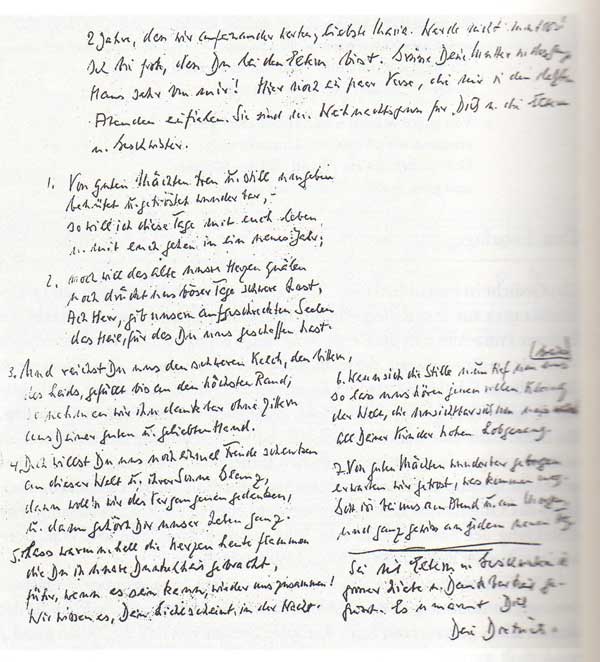 2 Jahre, daß wir aufeinander warten, liebste Maria. Werde nicht mutlos!
Ich bin froh, daß Du bei den Eltern bist. Grüsse Deine Mutter u. das ganze
Haus sehr von mir! Hier noch ein paar Verse, die mir in den letzten
Abenden einfielen. Sie sind der Weihnachtsgruss für Dich u. die Eltern
u. Geschwister.
1. Von guten Mächten treu u. still umgeben
behütet u. getröstet wunderbar, –
so will ich diese Tage mit euch leben
u. mit euch gehen in ein neues Jahr;
2. noch will das alte unsre Herzen quälen
noch drückt uns böser Tage schwere Last,
Ach Herr, gib unsern aufgeschreckten Seelen
das Heil, für das Du uns geschaffen hast.
3. Und reichst Du uns den schweren Kelch, den bittern,
des Leids, gefüllt bis an den höchsten Rand,
so nehmen wir ihn dankbar ohne Zittern
aus Deiner guten u. geliebten Hand.
4. Doch willst Du uns noch einmal Freude schenken
an dieser Welt u. ihrer Sonne Glanz,
dann woll'n wir des Vergangenen gedenken,
u. dann gehört Dir unser Leben ganz.
5. Lass warm u. hell die Kerzen heute flammen
die Du in unsre Dunkelheit gebracht,
führ, wenn es sein kann, wieder uns zusammen!
Wir wissen es, Dein Licht scheint in der Nacht.
6. Wenn sich die Stille nun tief um uns
so lass uns hören jenen vollen Klang
der Welt, die unsichtbar sich um uns
all Deiner Kinder hohen Lobgesang.
7. Von guten Mächten wunderbar geborgen
erwarten wir getrost, was kommen mag.
Gott ist bei uns am Abend u. am Morgen,
und ganz gewiss an jedem neuen Tag.
Sei mit Eltern u. Geschwistern in
grosser Liebe u. Dankbarkeit ge-
grüsst. Es umarmt Dich
Dein Dietrich.